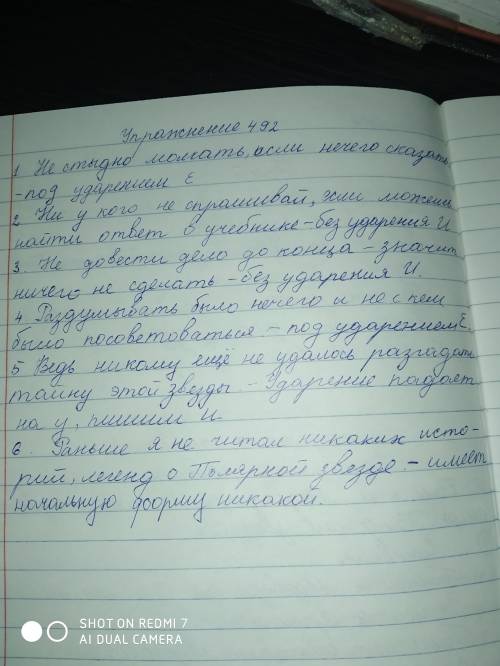 Упражнение 492
1 Не стыдно молчать, если нечего сказать
- под ударением Е
2. Ни у кого не спрашивай, если можешь
найти ответ в учебнике - без ударения И
3. Не довести дело до конца - значит
ничего не сделать - без ударения И.
4. Раздумывать было нечего и не с кем
было посоветоваться - под ударением Е.
5 Ведь никому ещё не удалось разгадать
тайну этой звезды. - Ударение падает
на у, пишем и
6. Раньше я не читал никаких исто-
рий, легенд о Полярной звезде - имеет
начальную форму никакой.
SHOT ON REDMI 7
AI DUAL CAMERA